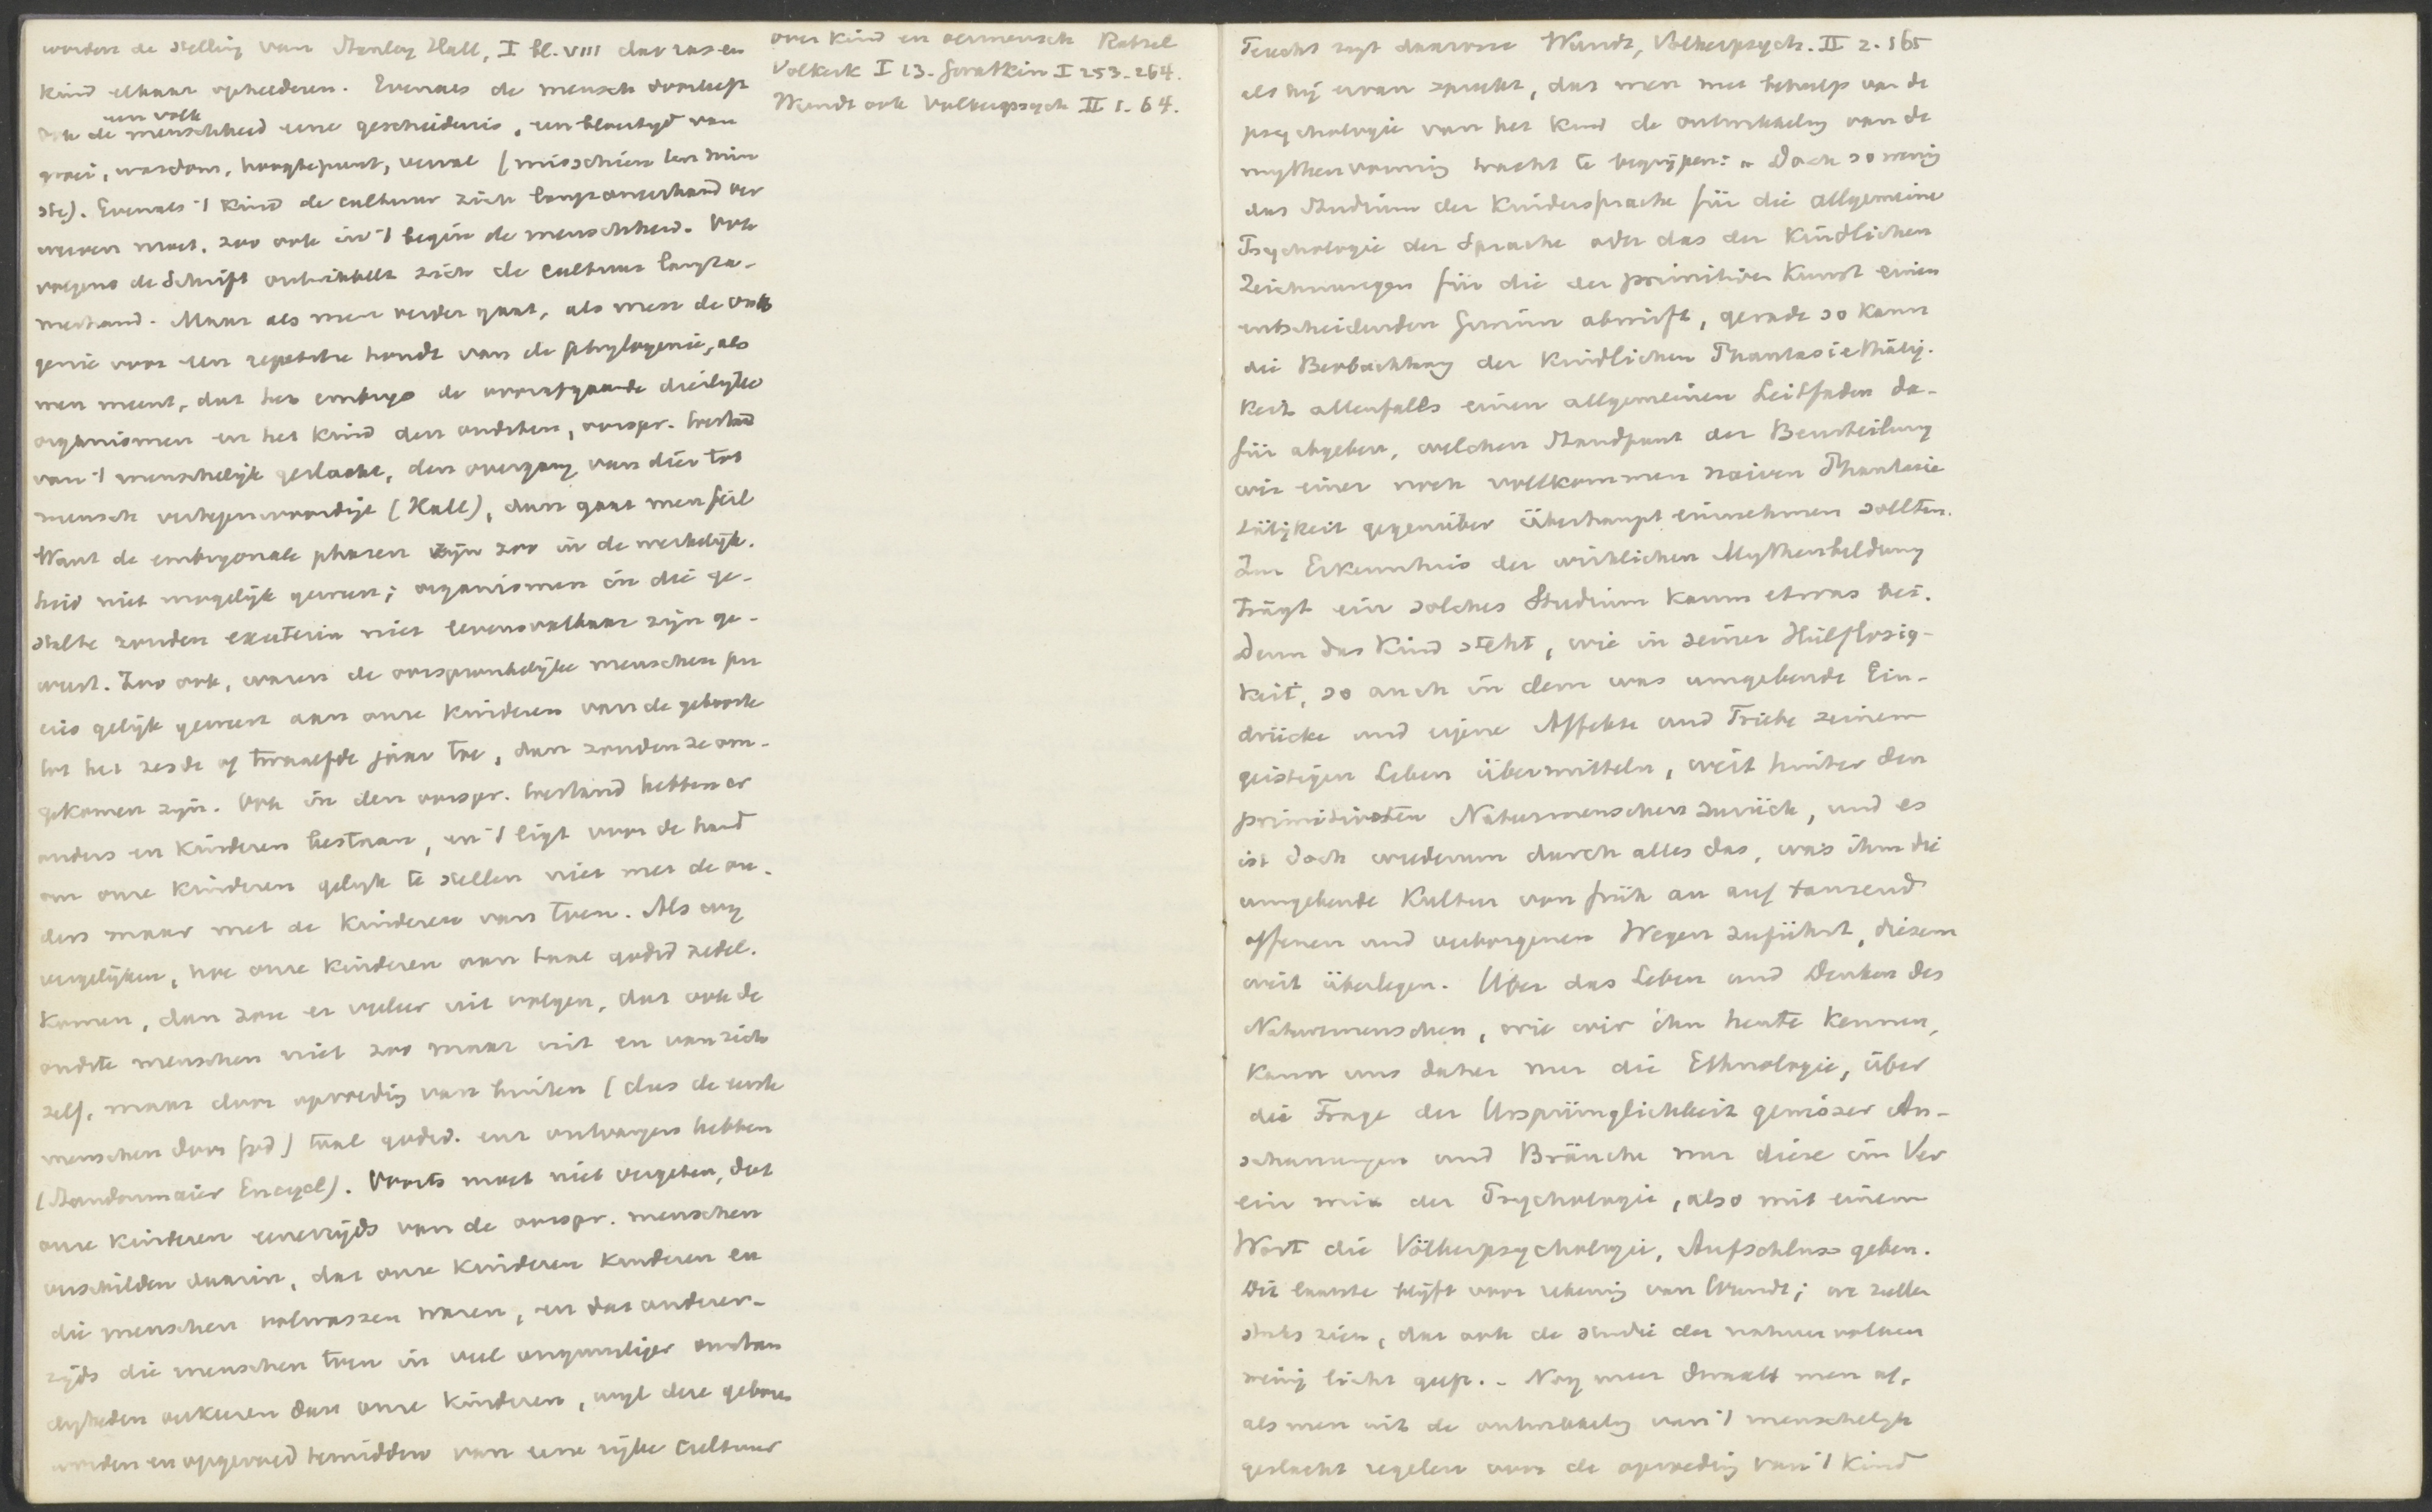 worden de stelling van Stanley Hall, I bl. VIII dat ras en
kind elkaar ophelderen. Evenals de mensch doorleeft
een volk
ook de menschheid eene geschiedenis, een bloeityd van
groei, wasdom, hoogtepunt, verval (misschien ten min
ste). Evenals 't kind de cultuur zich langzamerhand ver
werven moet, zoo ook in 't begin de menschheid. Ook
volgens de Schrift ontwikkelt zich de cultuur langza-
merhand. Maar als men verder gaat, als men de onto
genie voor een repetitie houdt van de phylogenie, als
men meent, dat het embryo de voorafgaande dierlyke
organismen en het kind den oudsten, oorspr. toestand
van 't menschelijk geslacht, den overgang van dier tot
mensch vertegenwoordigt (Hall), dan gaat men feil
Want de embryonale phasen zijn zoo in de werkelijk-
heid niet mogelijk geweest; organismen in die ge-
stalte zouden extra uterin niet levensvatbaar zijn ge-
weest. Zoo ook, waren de oorspronkelijke menschen pre
cies gelijk geweest aan onze kinderen van de geboorte
tot het zesde of twaalfde jaar toe, dan zouden ze om-
gekomen zijn. Ook in den oorspr. toestand hebben er
ouders en kinderen bestaan, en 't ligt voor de hand
om onze kinderen gelijk te stellen niet met de ou-
ders maar met de kinderen van toen. Als wij
vergelijken, hoe onze kinderen aan taal godsd zedel.
komen, dan zou er veeleer uit volgen, dat ook de
oudste menschen niet zoo maar uit en van zich
zelf, maar door opvoeding van buiten (dus de eerste
menschen door God) taal godsd. enz ontvangen hebben
(Standonmaier Encycl). Voorts moet niet vergeten, dat
onze kinderen eenerzijds van de oorspr. menschen
verschilden daarin, dat onze kinderen kinderen en
die menschen volwassen waren, en dat anderer-
zijds die menschen toen in veel ongunstiger omstan
digheden verkeeren dan onze kinderen, wijl deze geboren
worden en opgevoed temidden van eene rijke cultuur
over kind en oermensch Ratzel
Volkerk I 13. Gerathkin I 253-264.
Wundt ook Volkerpsych II 1. 64.
Terecht zegt daarom Wundt, Volkerpsych. II 2. 165
als hij ervan spreekt, dat men met behulp van de
psychologie van het kind de ontwikkeling van de
mythenvorming tracht te begrijpen: "Doch so wenig
das Studium der Kindersprache für die allgemeine
Psychologie der Sprache oder das der Kindlichen
Zeichnungen für die der primitiven Kunst einen
entscheidenden Gewinn abwirft, gerade so kann
die Beobachtung der Kindlichen Phantasiethätig-
keit allenfalls einen allgemeinen Leitfaden da-
für abgeben, welchen Standpunt der Beurteilung
wir einer noch vollkommen naiven Phantasie
tätigkeit gegenüber überhaupt einnehmen sollten.
Zur Erkenntnis der wirklichen Mythenbildung
trägt ein solches Studium kaum etwas bei.
Denn das Kind steht, wie in seiner Hülflosig-
keit, so auch in dem was umgebende Ein-
drücke und eigene Affekte und Triebe seinem
geistigen Leben übermitteln, weit hinter den
primitivsten Naturmenschen zurück, und es
ist doch wiederum durch alles das, was ihm die
umgebende Kultur von früh an auf tausend
offenen und verborgenen Wegen zuführt, diesem
weit überlegen. Über das Leben und Denken des
Naturmenschen, wie wir ihn heute kennen,
kann uns daher nur die Ethnologie, über
die Frage der Ursprünglichkeit gewisser An-
schauungen und Bräuche nur diese im Ver
ein mit der Psychologie, also mit einem
Wort die Völkerpsychologie, Aufschluss geben.
Dit laatste blijft voor rekening van Wundt; we zullen
straks zien, dat ook de studie der natuurvolken
weinig licht geeft. - Nog meer dwaalt men af,
als men uit de ontwikkeling van 't menschelijk
geslacht regelen voor de opvoeding van 't kind